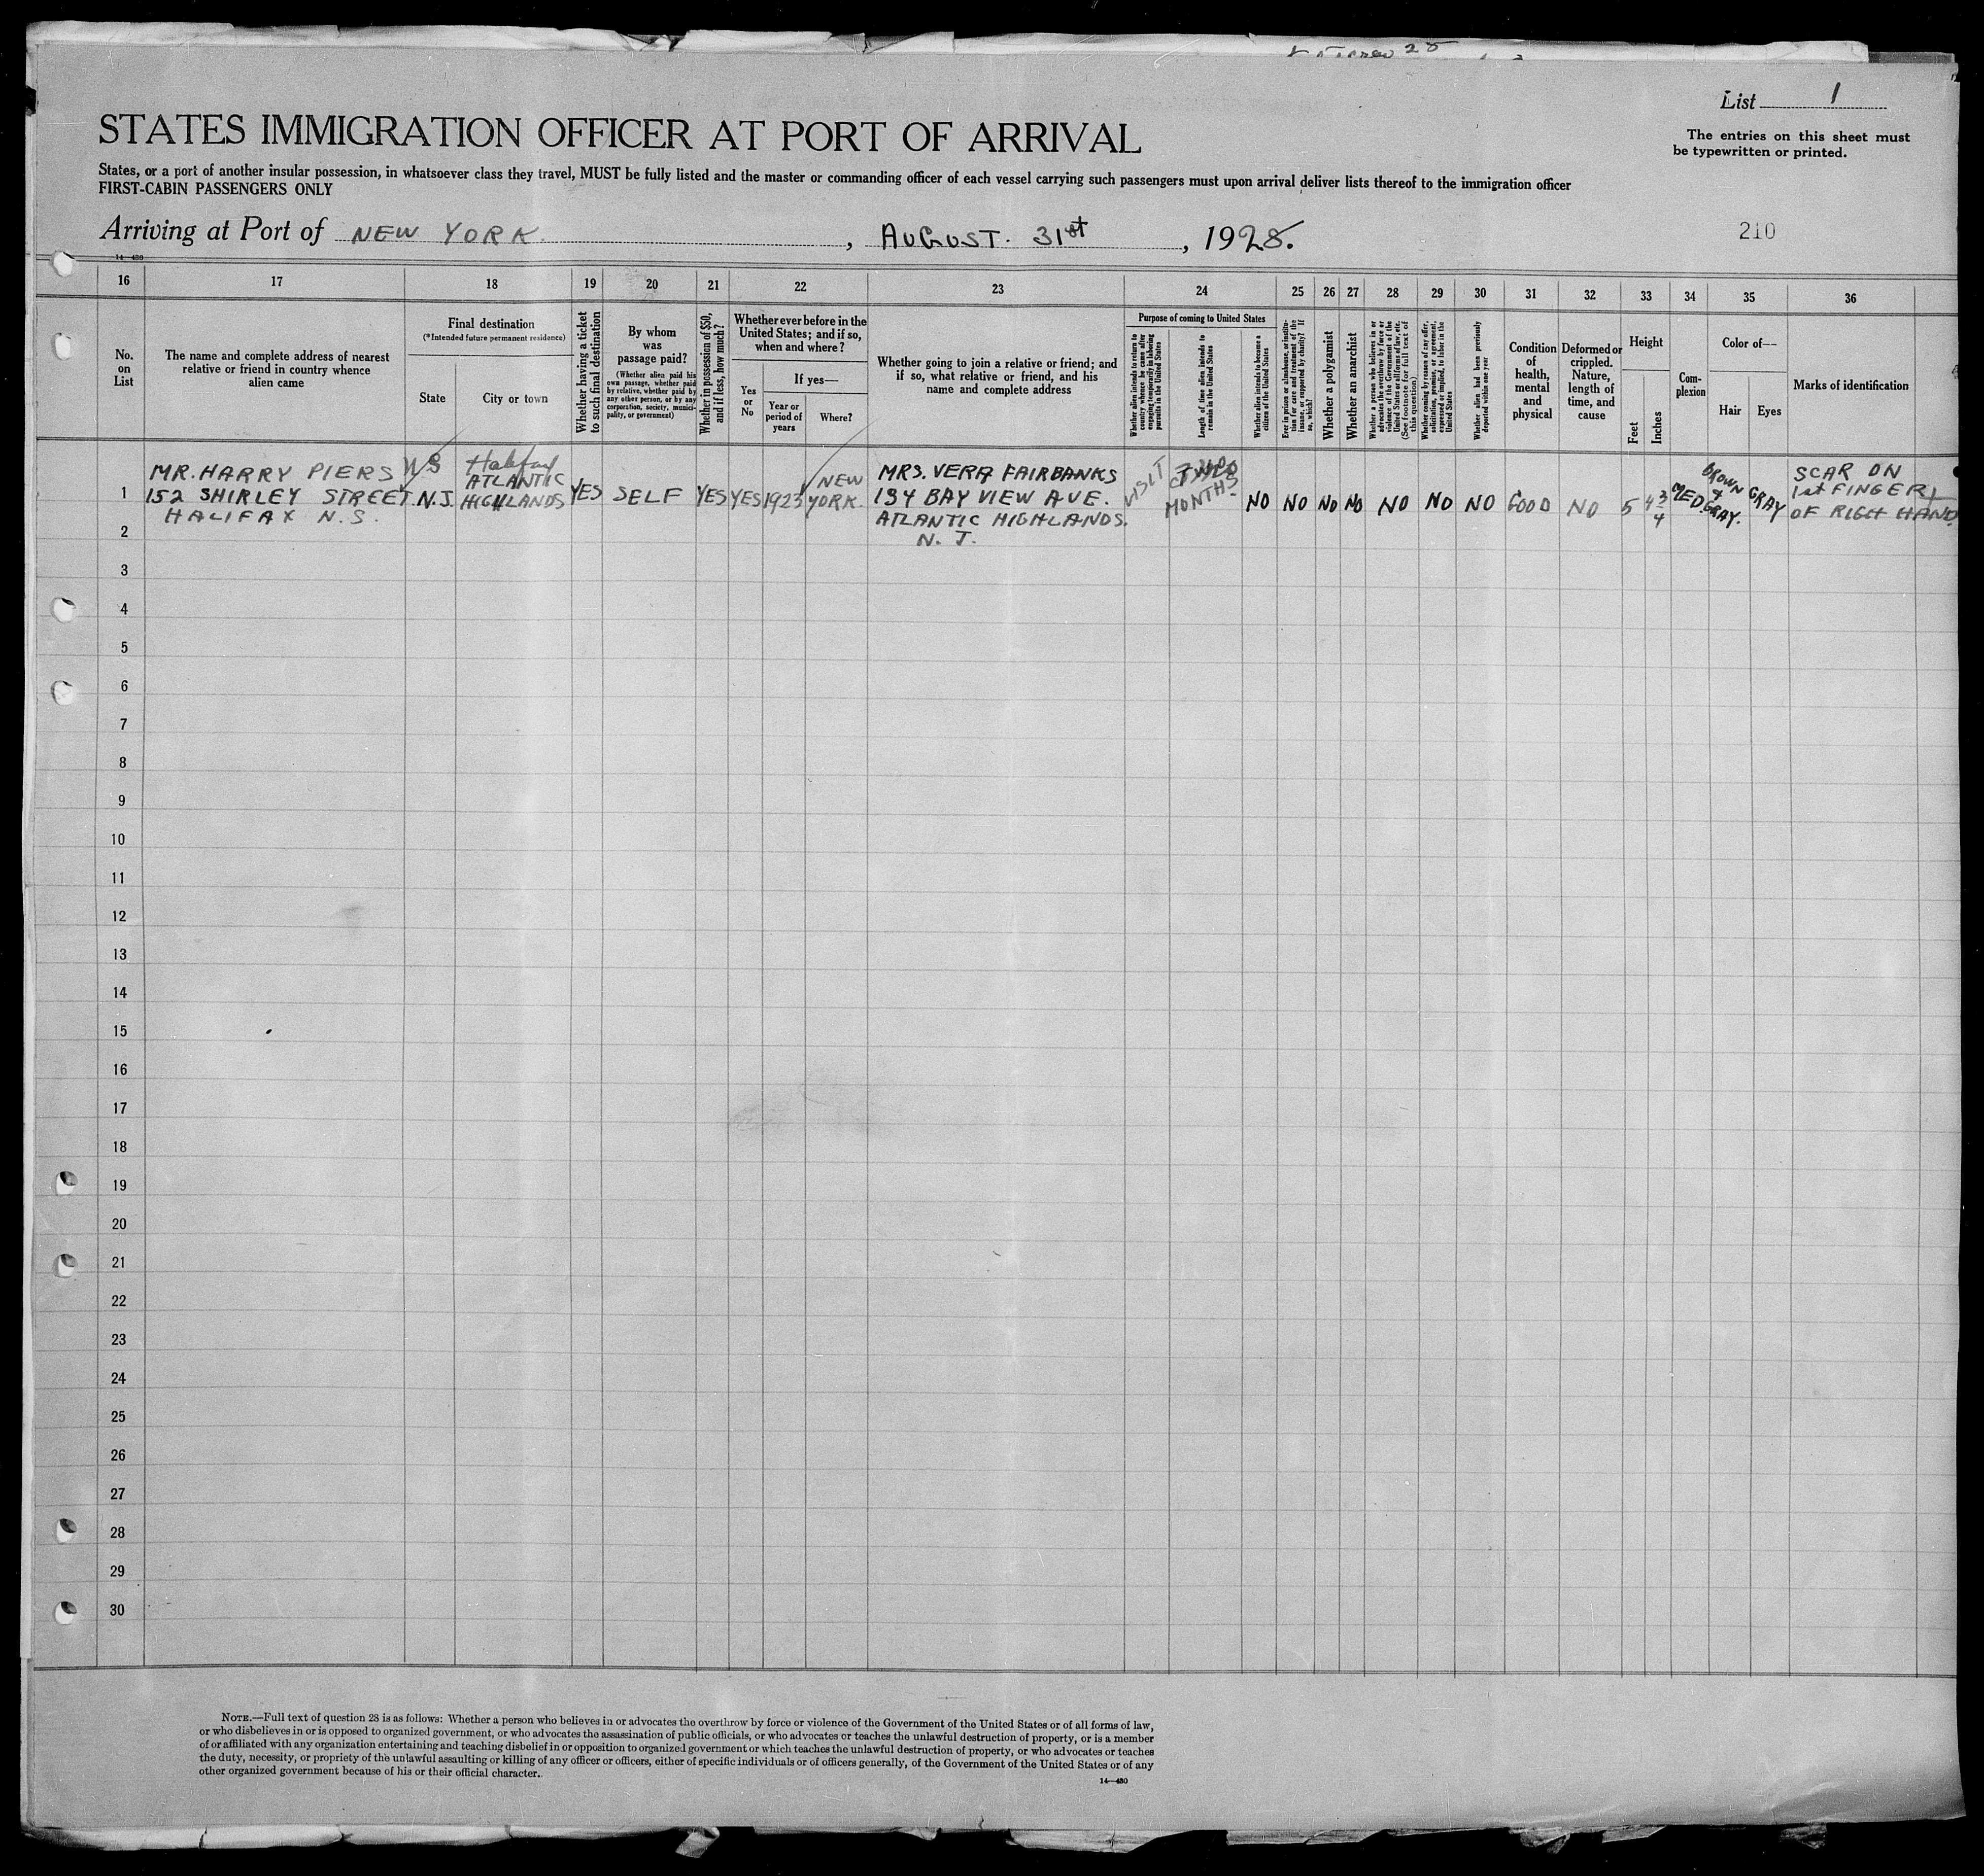 List 1
STATES IMMIGRATION OFFICER AT PORT OF ARRIVAL
The entries on this sheet must
be typewritten or printed.
States, or a port of another insular possession, in whatsoever class they travel, MUST be fully listed and the master or commanding officer of each vessel carrying such passengers must upon arrival deliver lists thereof to the immigration officer
FIRST-CABIN PASSENGERS ONLY
Arriving at Port of NEW YORK, AUGUST. 31st, 1928.
210
14—430
16 17 18 19 20 21 22 23 24 25 26 27 28 29 30 31 32 33 34 35 36
No.
on
List
The name and complete address of nearest
relative or friend in country whence
alien came
Final destination
(*Intended future permanent residence)
State
City or town
Whether having a ticket
to such final destination
By whom
was
passage paid?
(Whether alien paid his
own passage, whether paid
by relative, whether paid by
any other person, or by any
corporation, society, munici-
pality, or government)
Whether in possession of $50,
and if less, how much?
Whether ever before in the
United States; and if so,
when and where?
Yes
or
No
If yes—
Year or
period of
years
Where?
Whether going to join a relative or friend; and
if so, what relative or friend, and his
name and complete address
Purpose of coming to United States
Whether alien intends to return to
country whence he came after
engaging temporarily in laboring
pursuits in the United States
Length of time alien intends to
remain in the United States
Whether alien intends to become a
citizen of the United States
Ever in prison or almshouse, or institu-
tion for care and treatment of the
insane, or supported by charity? If
so, which?
Whether a polygamist
Whether an anarchist
Whether a person who believes in or
advocates the overthrow by force or
violence of the Government of the
United States or all forms of law, etc.
(See footnote for full text of
this question)
Whether coming by reason of any offer,
solicitation, promise, or agreement,
expressed or implied, to labor in the
United States
Whether alien had been previously
deported within one year
Condition
of
health,
mental
and
physical
Deformed or
crippled.
Nature,
length of
time, and
cause
Height
Feet
Inches
Com-
plexion
Color of—
Hair
Eyes
Marks of identification
1
MR. HARRY PIERS
152 SHIRLEY STREET
HALIFAX N.S.
NS
N.J.
Halifax
ATLANTIC
HIGHLANDS
YES
SELF
YES
YES
1923
NEW
YORK.
MRS. VERA FAIRBANKS
134 BAY VIEW AVE.
ATLANTIC HIGHLANDS.
N. J.
VISIT
MONTHS
NO
NO
NO
NO
NO
NO
NO
GOOD
NO
5
4 3/4
MED.
BROWN
&
GRAY.
GRAY
SCAR ON
1st FINGER
OF RIGH HAND
2
3
4
5
6
7
8
9
10
11
12
13
14
15
16
17
18
19
20
21
22
23
24
25
26
27
28
29
30
NOTE.—Full text of question 28 is as follows: Whether a person who believes in or advocates the overthrow by force or violence of the Government of the United States or of all forms of law,
or who disbelieves in or is opposed to organized government, or who advocates the assassination of public officials, or who advocates or teaches the unlawful destruction of property, or is a member
of or affiliated with any organization entertaining and teaching disbelief in or opposition to organized government or which teaches the unlawful destruction of property, or who advocates or teaches
the duty, necessity, or propriety of the unlawful assaulting or killing of any officer or officers, either of specific individuals or of officers generally, of the Government of the United States or of any
other organized government because of his or their official character.
14—430